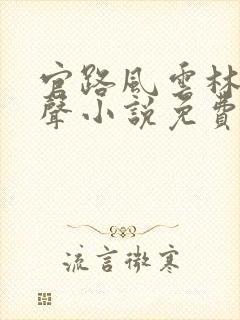 官路風雲林
聲小說免費
流言微寒